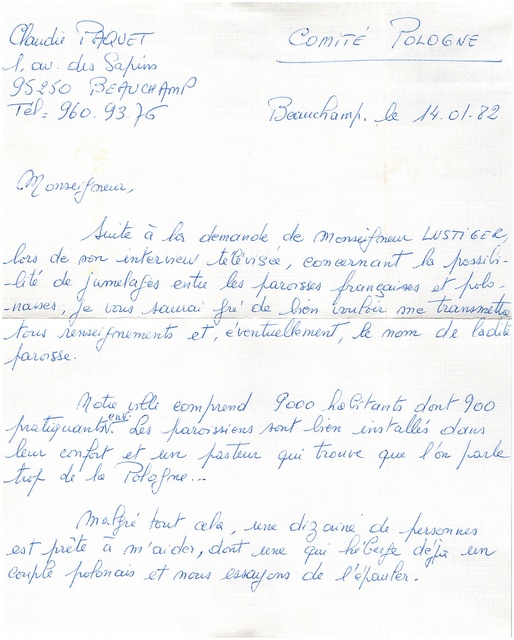 Claudie PAQUET
1, av. des Sapins
95250 BEAUCHAMP
Tél: 960.93.76
COMITÉ POLOGNE
Beauchamp, le 14.01.82
Monseigneur,
Suite à la demande de Monseigneur LUSTIGER,
lors de son interview télévisée, concernant la possibi-
-lité de jumelages entre les paroisses françaises et polo-
-naises, je vous saurai gré de bien vouloir me transmettre
tous renseignements et, éventuellement, le nom de ladite
paroisse.
Notre ville comprend 9000 habitants dont 900
pratiquants env. Les paroissiens sont bien installés dans
leur confort et un pasteur qui trouve que l'on parle
trop de la Pologne...
Malgré tout cela, une dizaine de personnes
est prête à m'aider, dont une qui héberge déjà un
couple polonais et nous essayons de l'épauler.